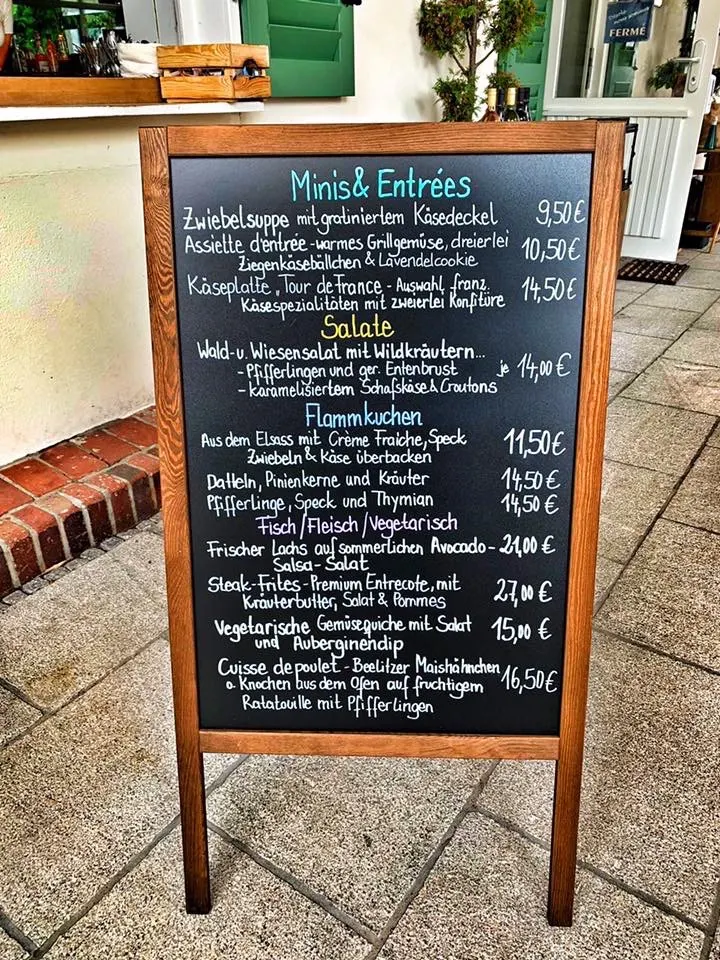 FERMÉ
Minis & Entrées
Zwiebelsuppe mit gratiniertem Käsedeckel 9,50€
Assiette d'entrée - warmes Grillgemüse, dreierlei 10,50€
Ziegenkäsebällchen & Lavendelcookie
Käseplatte „Tour de France - Auswahl franz. 14,50€
Käsespezialitäten mit zweierlei Konfitüre
Salate
Wald- u. Wiesensalat mit Wildkräutern...
- Pfifferlingen und ger. Entenbrust je 14,00€
- karamelisiertem Schafskäse & Croutons
Flammkuchen
Aus dem Elsass mit Crème Fraiche, Speck 11,50€
Zwiebeln & Käse überbacken
Datteln, Pinienkerne und Kräuter 14,50€
Pfifferlinge, Speck und Thymian 14,50€
Fisch/Fleisch/Vegetarisch
Frischer Lachs auf sommerlichen Avocado- 21,00€
Salsa-Salat
Steak-Frites - Premium Entrecote, mit 27,00€
Kräuterbutter, Salat & Pommes
Vegetarische Gemüsequiche mit Salat 15,00€
und Auberginendip
Cuisse de poulet - Beelitzer Maishähnchen 16,50€
o. Knochen aus dem Ofen auf fruchtigem
Ratatouille mit Pfifferlingen